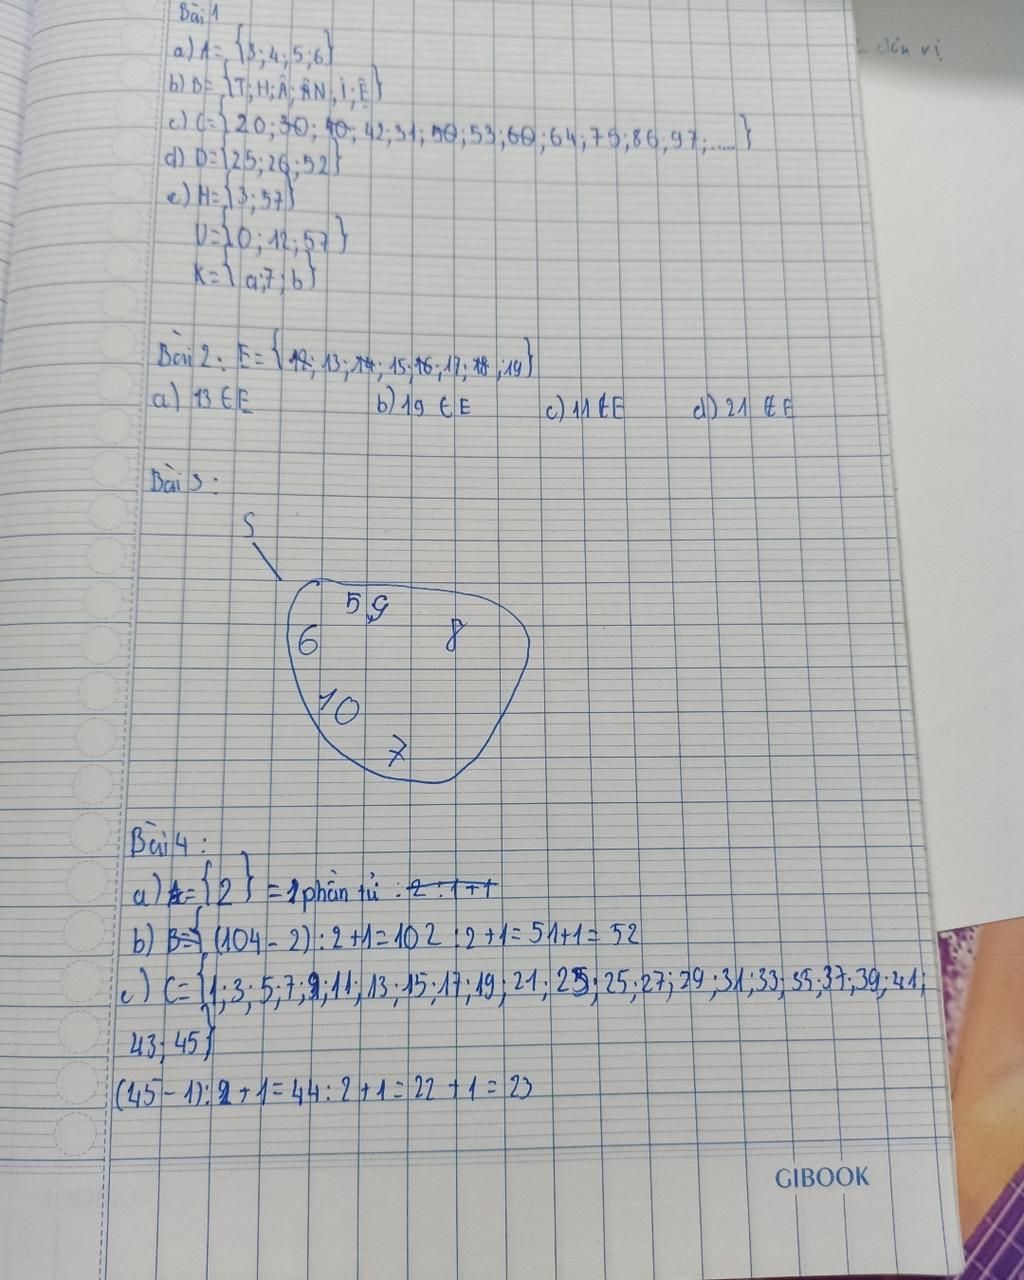 Bài 1
đơn vị
a) A= {3; 4; 5; 6}
b) B= {T; H; Â; ÂN, I; Ê}
c) C={20; 30; 40; 42; 31; 50; 53; 60; 64; 75; 86; 97; .....}
d) D={25; 26; 52}
e) H={3; 57}
U={0; 12; 57}
K={a;7;b}
Bài 2: E= {12; 13; 14; 15; 16; 17; 18; 19}
a) 13 ∈ E b) 19 ∈ E c) 11 ∉ E d) 21 ∉ E
Bài 3:
S
5 9
6 8
10
7
Bài 4:
a) A= {2} = 1 phần tử : 2 : 1 + 1
b) B={ (104 - 2) : 2 + 1 = 102 : 2 + 1 = 51 + 1 = 52
c) C= {1; 3; 5; 7; 9; 11; 13; 15; 17; 19; 21; 23; 25; 27; 29; 31; 33; 35; 37; 39; 41;
43; 45}
(45 - 1) : 2 + 1 = 44 : 2 + 1 = 22 + 1 = 23
GIBOOK